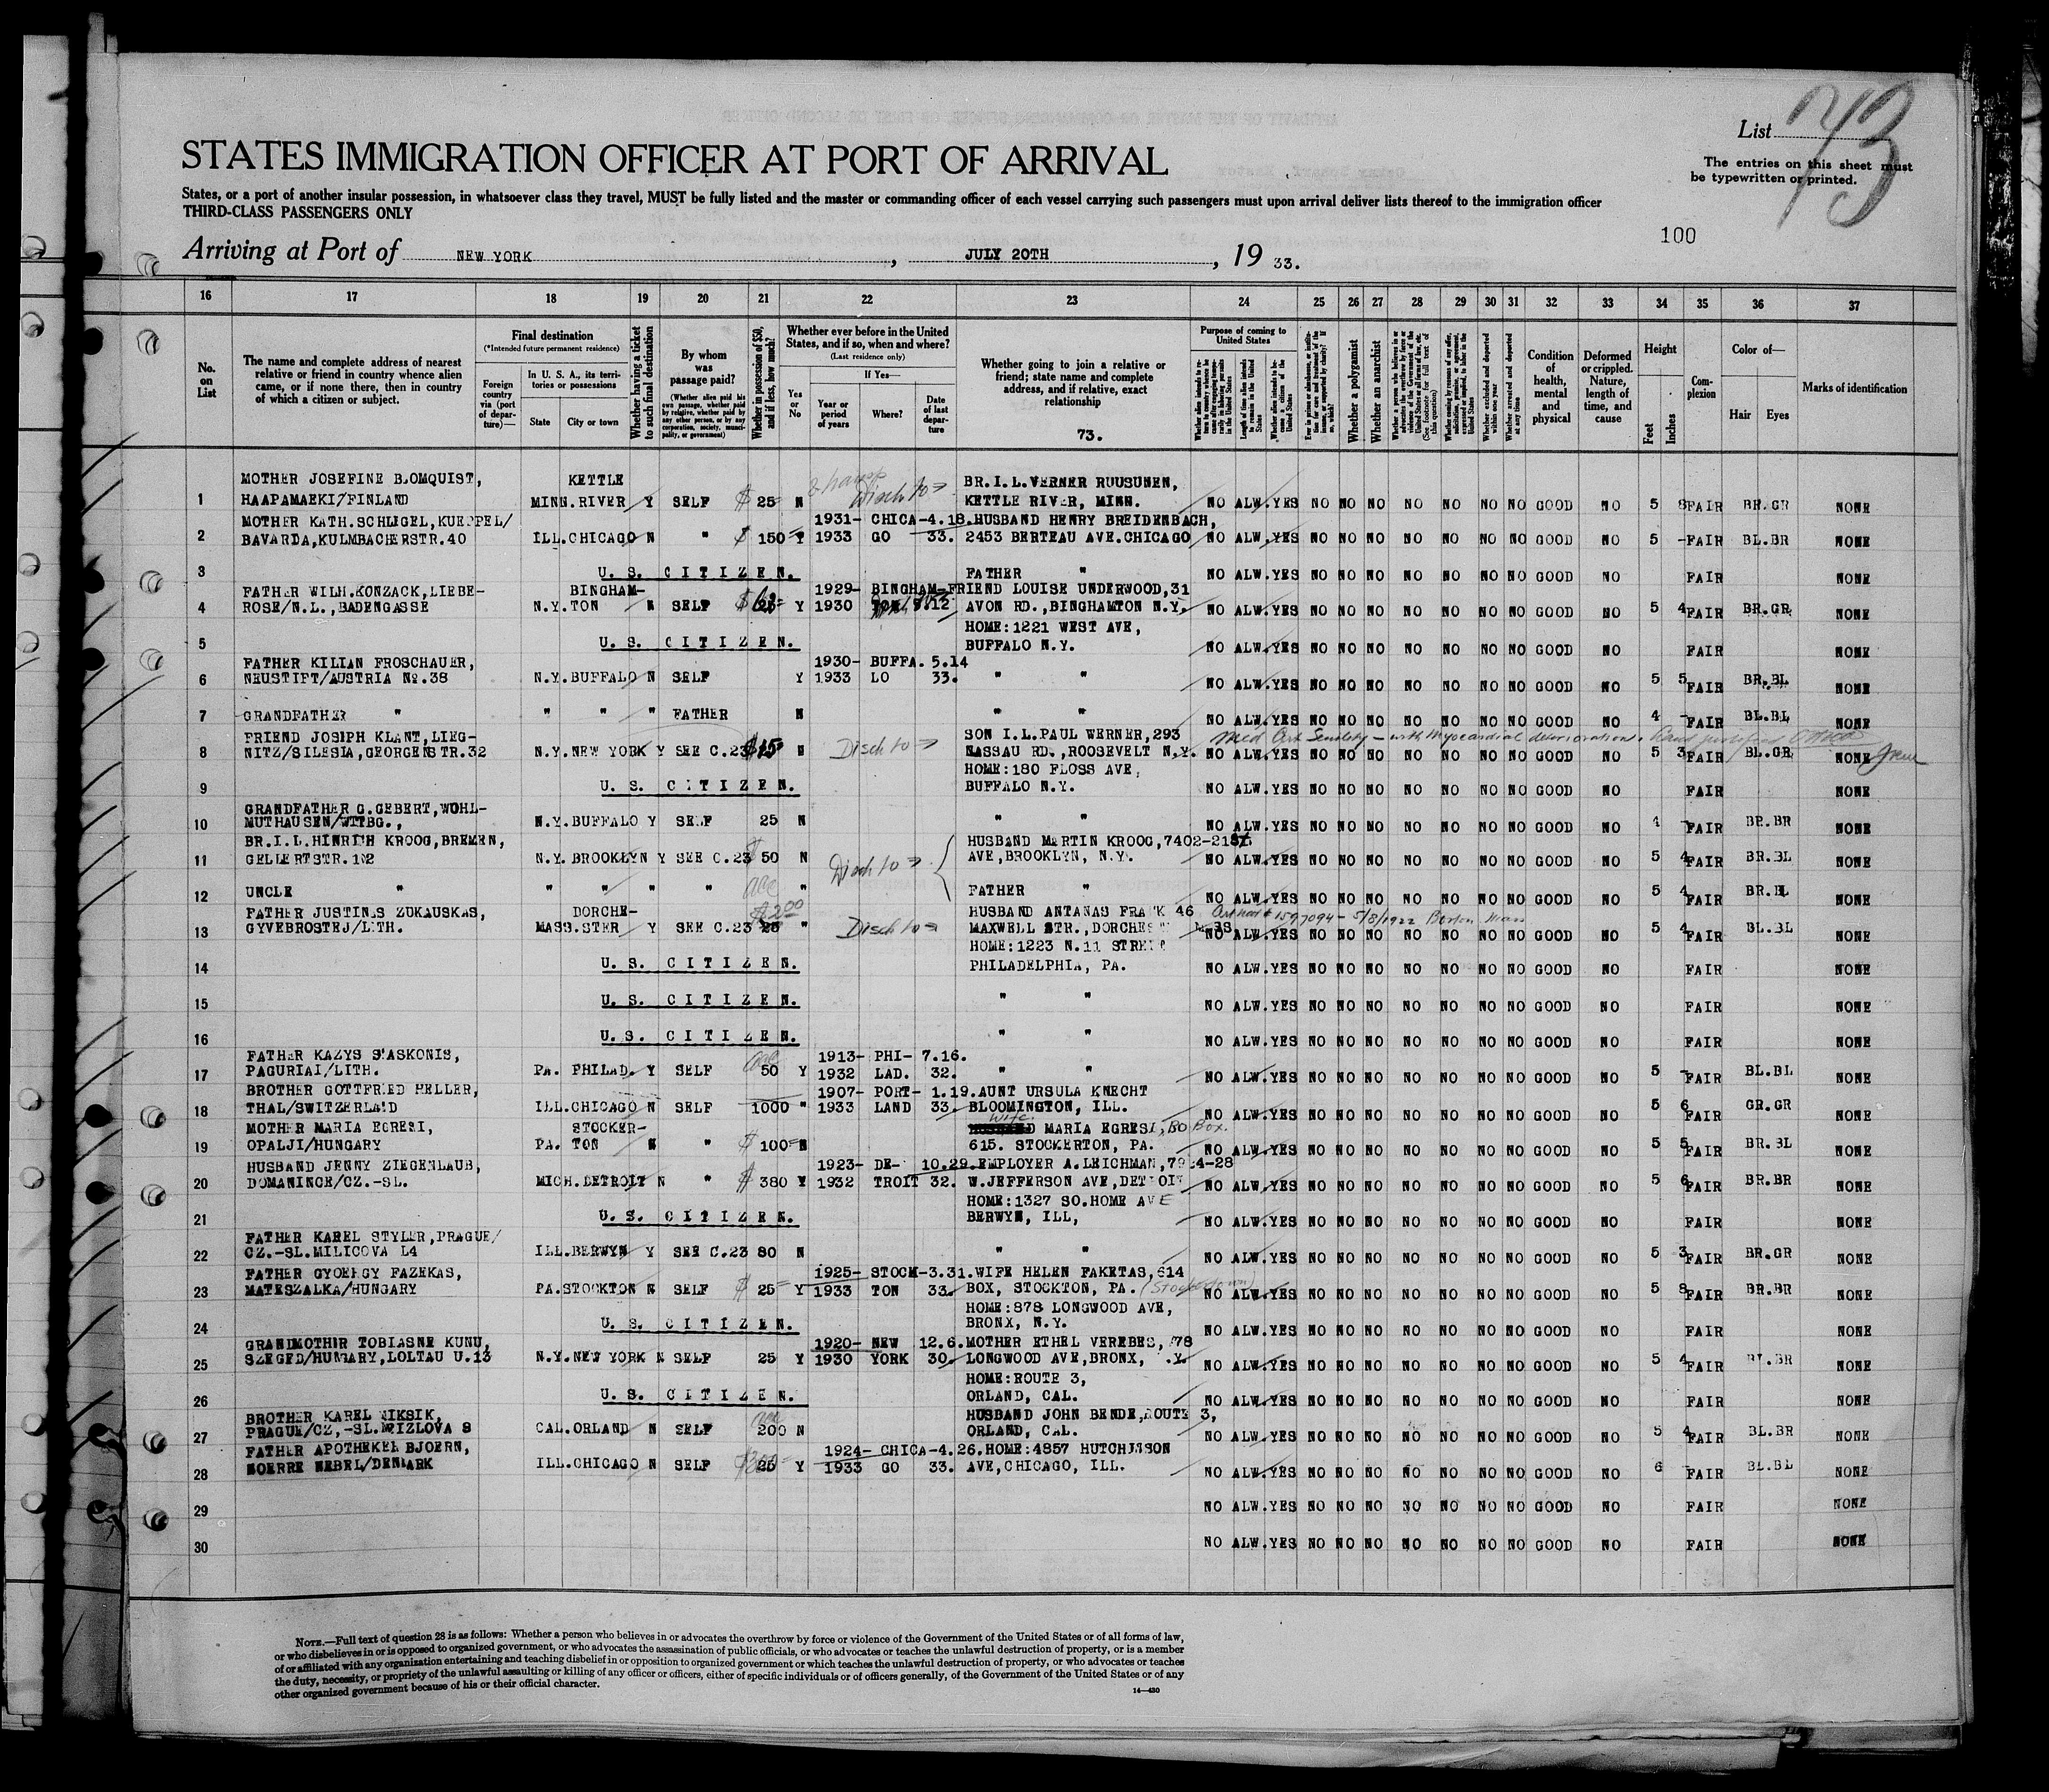 List 73
The entries on this sheet must
be typewritten or printed.
STATES IMMIGRATION OFFICER AT PORT OF ARRIVAL
States, or a port of another insular possession, in whatsoever class they travel, MUST be fully listed and the master or commanding officer of each vessel carrying such passengers must upon arrival deliver lists thereof to the immigration officer
THIRD-CLASS PASSENGERS ONLY
100
Arriving at Port of NEW YORK, JULY 20TH, 19 33.
16 17 18 19 20 21 22 23 24 25 26 27 28 29 30 31 32 33 34 35 36 37
No. on List
The name and complete address of nearest relative or friend in country whence alien came, or if none there, then in country of which a citizen or subject.
Final destination
(*Intended future permanent residence)
Foreign country via (port of departure)—
In U. S. A., its territories or possessions
State
City or town
Whether having a ticket to such final destination
By whom was passage paid?
(Whether alien paid his own passage, whether paid by relative, whether paid by any other person, or by any corporation, society, municipality, or government)
Whether in possession of $50, and if less, how much?
Whether ever before in the United States, and if so, when and where?
(Last residence only)
Yes or No
If Yes—
Year or period of years
Where?
Date of last departure
Whether going to join a relative or friend; state name and complete address, and if relative, exact relationship
73.
Purpose of coming to United States
Length of time alien intends to remain in the United States
Whether alien intends to become a citizen of the United States
Whether a polygamist
Whether an anarchist
(See footnote for full text of this question)
Whether excluded and deported within one year
Whether arrested and deported at any time
Condition of health, mental and physical
Deformed or crippled. Nature, length of time, and cause
Height
Feet
Inches
Complexion
Color of—
Hair
Eyes
Marks of identification
MOTHER JOSEFINE B.OMQUIST, KETTLE BR.I.L.VERNER RUUSUNEN,
1 HAAPAMAEKI/FINLAND MINN.RIVER Y SELF $ 25 N Disch to KETTLE RIVER, MINN. NO ALW.YES NO NO NO NO NO NO NO GOOD NO 5 8 FAIR BR.GR NONE
MOTHER KATH.SCHLIGEL,KUEPPEL/ 1931- CHICA-4.18.HUSBAND HENRY BREIDENBACH,
2 BAVARDA,KULMBACHERSTR.40 ILL.CHICAGO N " $ 150 Y 1933 GO 33. 2453 BERTEAU AVE.CHICAGO NO ALW.YES NO NO NO NO NO NO NO GOOD NO 5 - FAIR BL.BR NONE
3 U. S. C I T I Z E N. FATHER " NO ALW.YES NO NO NO NO NO NO NO GOOD NO FAIR NONE
FATHER WILH.KONZACK,LIEBE- BINGHAM- 1929- BINGHAM-FRIEND LOUISE UNDERWOOD,31
4 ROSE/N.L.,BADENGASSE N.Y.TON N SELF $ Y 1930 TON 9.12 AVON RD.,BINGHAMTON N.Y. NO ALW.YES NO NO NO NO NO NO NO GOOD NO 5 4 FAIR BR.GR NONE
HOME:1221 WEST AVE,
5 U. S. C I T I Z E N. BUFFALO N.Y. NO ALW.YES NO NO NO NO NO NO NO GOOD NO FAIR NONE
FATHER KILIAN FROSCHAUER, 1930- BUFFA. 5.14
6 NEUSTIFT/AUSTRIA No.38 N.Y.BUFFALO N SELF Y 1933 LO 33. " " NO ALW.YES NO NO NO NO NO NO NO GOOD NO 5 5 FAIR BR.BL NONE
7 GRANDFATHER " " " " FATHER N " " NO ALW.YES NO NO NO NO NO NO NO GOOD NO 4 - FAIR BL.BL NONE
FRIEND JOSIPH KLANT,LIEG- SON I.L.PAUL WERNER,293 Med Cert Senility - with myocardial deterioration.
8 NITZ/SILESIA,GEORGENSTR.32 N.Y.NEW YORK Y SEE C.23 $15 N Disch to NASSAU RD.,ROOSEVELT N.Y. NO ALW.YES NO NO NO NO NO NO NO GOOD NO 5 3 FAIR BL.GR NONE
HOME:180 FLOSS AVE,
9 U. S. C I T I Z E N. BUFFALO N.Y. NO ALW.YES NO NO NO NO NO NO NO GOOD NO FAIR NONE
GRANDFATHER G.GEBERT,WOHL-
10 MUTHAUSEN/WTTBG., N.Y.BUFFALO Y SELF 25 N " " NO ALW.YES NO NO NO NO NO NO NO GOOD NO 4 - FAIR BR.BR NONE
BR.I.L.HINRICH KROOG,BREMEN, HUSBAND MARTIN KROOG,7402-21st
11 GELLERTSTR.102 N.Y. BROOKLYN Y SEE C.23 50 N Disch to AVE,BROOKLYN, N.Y. NO ALW.YES NO NO NO NO NO NO NO GOOD NO 5 4 FAIR BR.BL NONE
12 UNCLE " " " " " " FATHER " NO ALW.YES NO NO NO NO NO NO NO GOOD NO 5 4 FAIR BR.BL NONE
FATHER JUSTINAS ZUKAUSKAS, DORCHE- $2.00 HUSBAND ANTANAS FRANK 46 1597094 - 5/8/1922 Boston Mass
13 GYVEBROSTEJ/LITH. MASS.STER Y SEE C.23 " Disch to MAXWELL STR.,DORCHEST MASS NO ALW.YES NO NO NO NO NO NO NO GOOD NO 5 4 FAIR BL.BL NONE
HOME:1223 N.11 STREET
14 U. S. C I T I Z E N. PHILADELPHIA, PA. NO ALW.YES NO NO NO NO NO NO NO GOOD NO FAIR NONE
15 U. S. C I T I Z E N. " " NO ALW.YES NO NO NO NO NO NO NO GOOD NO FAIR NONE
16 U. S. C I T I Z E N. " " NO ALW.YES NO NO NO NO NO NO NO GOOD NO FAIR NONE
FATHER KAZYS STASKONIS, 1913- PHI- 7.16.
17 PAGURIAI/LITH. PA. PHILAD. Y SELF 50 Y 1932 LAD. 32. " " NO ALW.YES NO NO NO NO NO NO NO GOOD NO 5 - FAIR BL.BL NONE
BROTHER GOTTFRIED HELLER, 1907- PORT- 1.19.AUNT URSULA KNECHT
18 THAL/SWITZERLAND ILL.CHICAGO N SELF 1000 " 1933 LAND 33. BLOOMINGTON, ILL. NO ALW.YES NO NO NO NO NO NO NO GOOD NO 5 6 FAIR GR.GR NONE
MOTHER MARIA EGRESI, STOCKER- Wife MARIA EGRESI,BO Box.
19 OPALJI/HUNGARY PA. TON N " $ 100 N 615. STOCKERTON, PA. NO ALW.YES NO NO NO NO NO NO NO GOOD NO 5 5 FAIR BR.BL NONE
HUSBAND JENNY ZIEGENLAUB, 1923- DE- 10.29.EMPLOYER A.LEICHMAN,7924-28
20 DOMANINCE/CZ.-SL. MICH.DETROIT N " $ 380 Y 1932 TROIT 32. W.JEFFERSON AVE,DETROIT NO ALW.YES NO NO NO NO NO NO NO GOOD NO 5 6 FAIR BR.BR NONE
HOME:1327 SO.HOME AVE
21 U. S. C I T I Z E N. BERWYN, ILL, NO ALW.YES NO NO NO NO NO NO NO GOOD NO FAIR NONE
FATHER KAREL STYLER,PRAGUE/
22 CZ.-SL.MILICOVA L4 ILL.BERWYN Y SEE C.23 80 N " " NO ALW.YES NO NO NO NO NO NO NO GOOD NO 5 3 FAIR BR.GR NONE
FATHER GYOERGY FAZEKAS, 1925- STOCK-3.31.WIFE HELEN FAKETAS,614
23 MATESZALKA/HUNGARY PA.STOCKTON N SELF $ 25 Y 1933 TON 33. BOX, STOCKTON, PA. (Stockertown) NO ALW.YES NO NO NO NO NO NO NO GOOD NO 5 8 FAIR BR.BR NONE
HOME:878 LONGWOOD AVE,
24 U. S. C I T I Z E N. BRONX, N.Y. NO ALW.YES NO NO NO NO NO NO NO GOOD NO FAIR NONE
GRANDMOTHIR TOBIASNE KUNU, 1920- NEW 12.6.MOTHER ETHEL VEREBES, 878
25 SZEGED/HUNGARY,LOLTAU U.13 N.Y.NEW YORK N SELF 25 Y 1930 YORK 30. LONGWOOD AVE,BRONX, .Y. NO ALW.YES NO NO NO NO NO NO NO GOOD NO 5 4 FAIR BL.BR NONE
HOME:ROUTE 3,
26 U. S. C I T I Z E N. ORLAND, CAL. NO ALW.YES NO NO NO NO NO NO NO GOOD NO FAIR NONE
BROTHER KAREL MIKSIK, HUSBAND JOHN BENDE,ROUTE 3,
27 PRAGUE/CZ,-SL. 8 CAL.ORLAND N SELF 200 N ORLAND, CAL. NO ALW.YES NO NO NO NO NO NO NO GOOD NO 5 4 FAIR BL.BR NONE
FATHER APOTHEKER BJOERN, 1924- CHICA-4.26.HOME:4857 HUTCHINSON
28 NOERRE NEBEL/DENMARK ILL.CHICAGO N SELF 25 Y 1933 GO 33. AVE,CHICAGO, ILL. NO ALW.YES NO NO NO NO NO NO NO GOOD NO 6 - FAIR BL.BL NONE
29 NO ALW.YES NO NO NO NO NO NO NO GOOD NO FAIR NONE
30 NO ALW.YES NO NO NO NO NO NO NO GOOD NO FAIR NONE
NOTE.—Full text of question 28 is as follows: Whether a person who believes in or advocates the overthrow by force or violence of the Government of the United States or of all forms of law,
or who disbelieves in or is opposed to organized government, or who advocates the assassination of public officials, or who advocates or teaches the unlawful destruction of property, or is a member
of or affiliated with any organization entertaining and teaching disbelief in or opposition to organized government or which teaches the unlawful destruction of property, or who advocates or teaches
the duty, necessity, or propriety of the unlawful assaulting or killing of any officer or officers, either of specific individuals or of officers generally, of the Government of the United States or of any
other organized government because of his or their official character.
14—430